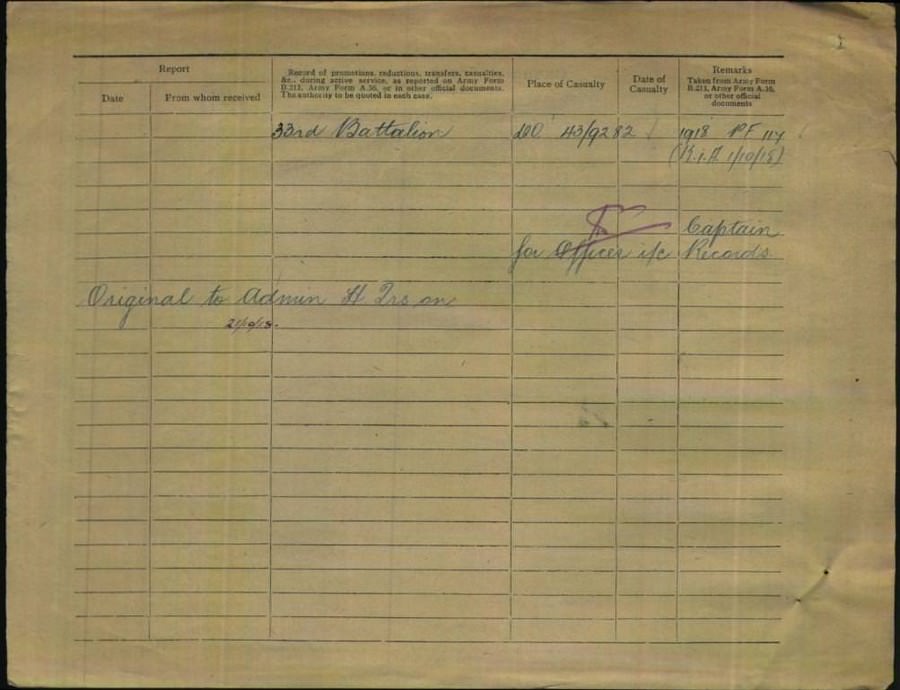 Report
Date
From whom received
Record of promotions, reductions, transfers, casualties,
&c., during active service, as reported on Army Form
B.213, Army Form A.36, or in other official documents.
The authority to be quoted in each case.
Place of Casualty
Date of
Casualty
Remarks
Taken from Army Form
B.213, Army Form A.36,
or other official
documents
33rd Battalion DO 43/9282 1918 PF 117
(K.i.A. 1/10/18)
Captain
for Officer i/c Records.
Original to Admin H Qrs on